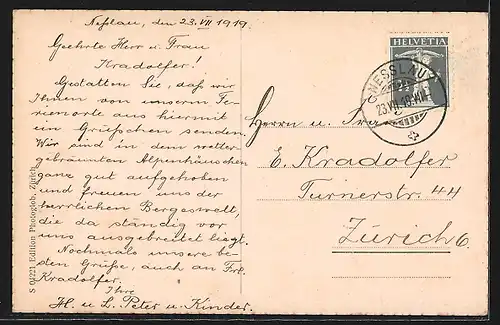 Neßlau, den 23. VII 1919.
Geehrte Herr u. Frau
Kradolfer!
Gestatten Sie, daß wir
Ihnen von unserm Fe-
rienorte aus hiermit
ein Grüßchen senden.
Wir sind in dem wetter-
gebräunten Alpenhäuschen
ganz gut aufgehoben
und freuen uns der
herrlichen Bergeswelt,
die da ständig vor
uns ausgebreitet liegt.
Nochmals unsere be-
sten Grüße, auch an Frl.
Kradolfer.
Ihre
H. u. L. Peter u. Kinder.
S 01221 Edition Photoglob, Zürich
HELVETIA
NESSLAU
23.VII.19
Herrn u. Fra
E. Kradolfer
Turnerstr. 44
Zürich 6.